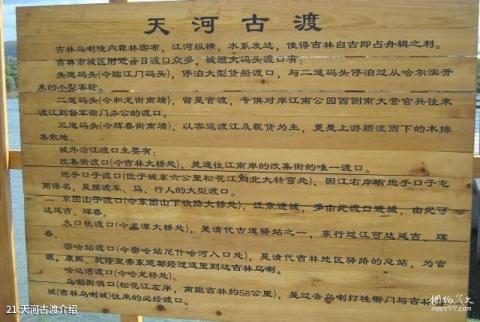 天河古渡
吉林乌喇境内森林密布，江河纵横，水系发达，使得吉林自古即占舟辑之利。
吉林市城区附近昔日渡口众多，城垣大码头渡口有：
头道码头(今临江门码头)，停泊大型货船渡口，与二道码头停泊过从哈尔滨开
来的小型客轮。
二道码头(今和龙街南端)，曾是官渡，专供对岸江南公园西侧南大营官兵往来
渡江到督军衙门办公的渡口。
三道码头(今珲春街南端)，以客运渡江及载货为主，更是上游顺流而下的木排
集散地。
城外沿江渡口主要有：
改集街渡口(今吉林大桥处)，是通往江南岸的改集街的唯一渡口。
炮手口子渡口(位于城东六公里松花江向北大转弯处)，因江右岸有炮手口子屯
而得名，是摆渡车、马、行人的大型渡口。
东团山子渡口(今东团山下铁路大桥处)，江东进城，多由此渡口进城，由此可
达延吉、珲春。
大口钦渡口(今 潭大桥处)，是清代古道驿站之一，东行过江可达延吉、珲
春。
密哈站渡口(今密哈站尼什哈河入口处)，是清代吉林地区驿路的总站，为官
渡，康熙、乾隆皇帝东巡都经过这里到达吉林乌喇。
哈达湾渡口(今哈龙桥处)。
乌喇街渡口(松花江左岸，南距吉林约58公里)，是过去乌喇打牲衙门与吉林
城(吉林乌喇城)往来的必经渡口。
21.天河古渡介绍
meet99.com